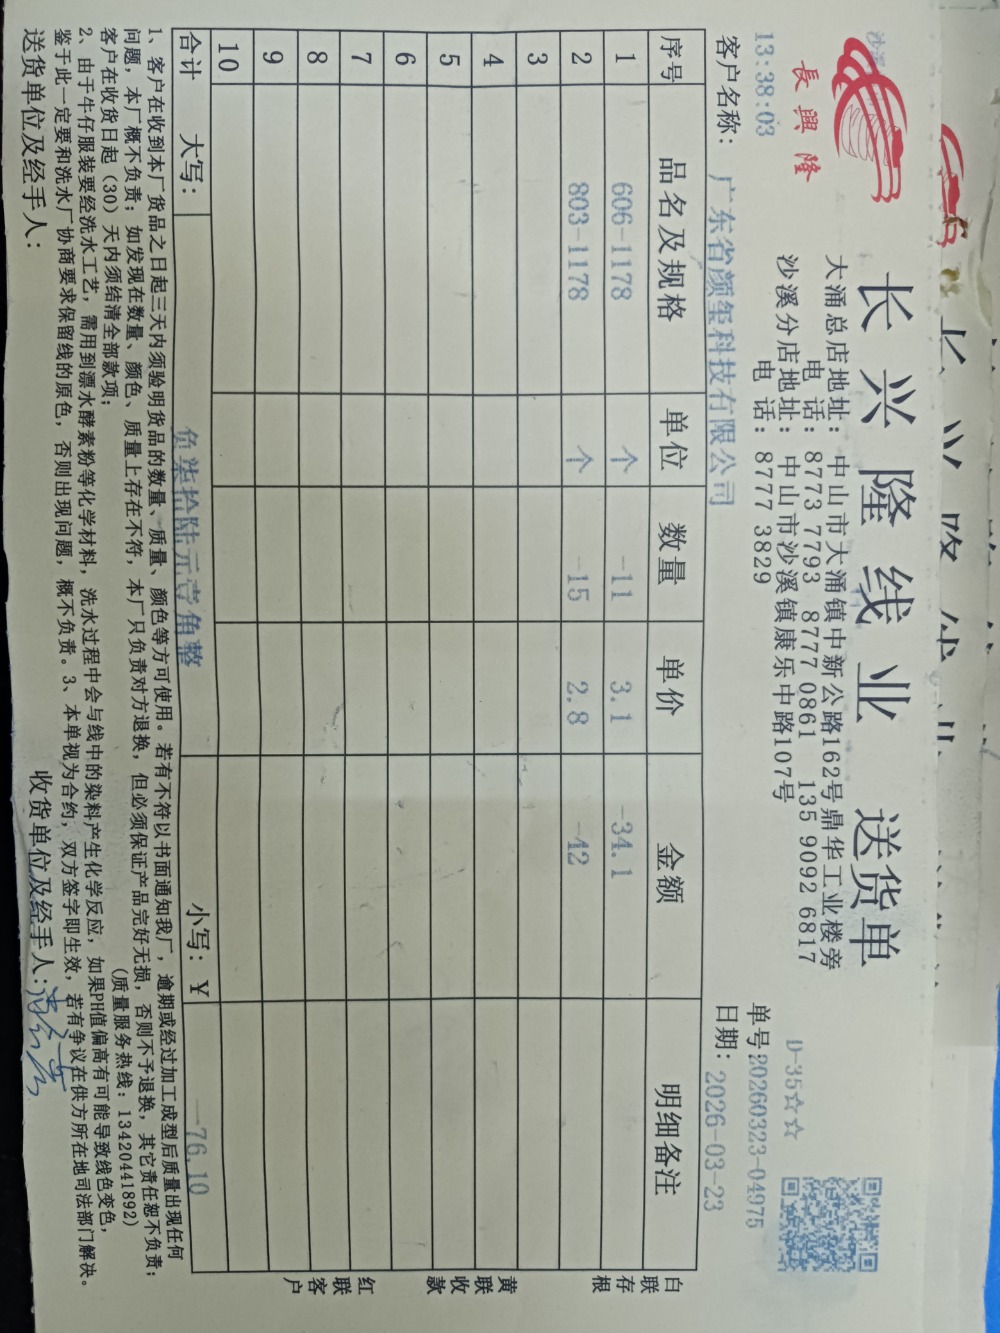 長興隆
长兴隆线业 送货单
大涌总店地址：中山市大涌镇中新公路162号鼎华工业楼旁
电 话：8773 7793 8777 0861 135 9092 6817
沙溪分店地址：中山市沙溪镇康乐中路107号
电 话：8777 3829
D-35☆☆
13:38:03
单号:20260323-04975
客户名称：广东省颜玺科技有限公司
日期：2026-03-23
序号 品名及规格 单位 数量 单价 金额 明细备注
1 606-1178 个 -11 3.1 -34.1
2 803-1178 个 -15 2.8 -42
3
4
5
6
7
8
9
10
合计 大写：负柒拾陆元壹角整 小写：￥ -76.10
白联存根
黄联收款
红联客户
1、客户在收到本厂货品之日起三天内须验明货品的数量、质量、颜色等方可使用。若有不符以书面通知我厂，逾期或经过加工成型后质量出现任何
问题，本厂概不负责；如发现在数量、颜色、质量上存在不符，本厂只负责对方退换，但必须保证产品完好无损，否则不予退换，其它责任恕不负责；
客户在收货日起（30）天内须结清全部款项；
(质量服务热线：13420441892)
2、由于牛仔服装要经洗水工艺，需用到漂水酵素粉等化学材料，洗水过程中会与线中的染料产生化学反应，如果PH值偏高有可能导致线色变色，
鉴于此一定要和洗水厂协商要求保留线的原色，否则出现问题，概不负责。3、本单视为合约，双方签字即生效，若有争议在供方所在地司法部门解决。
送货单位及经手人：
收货单位及经手人：